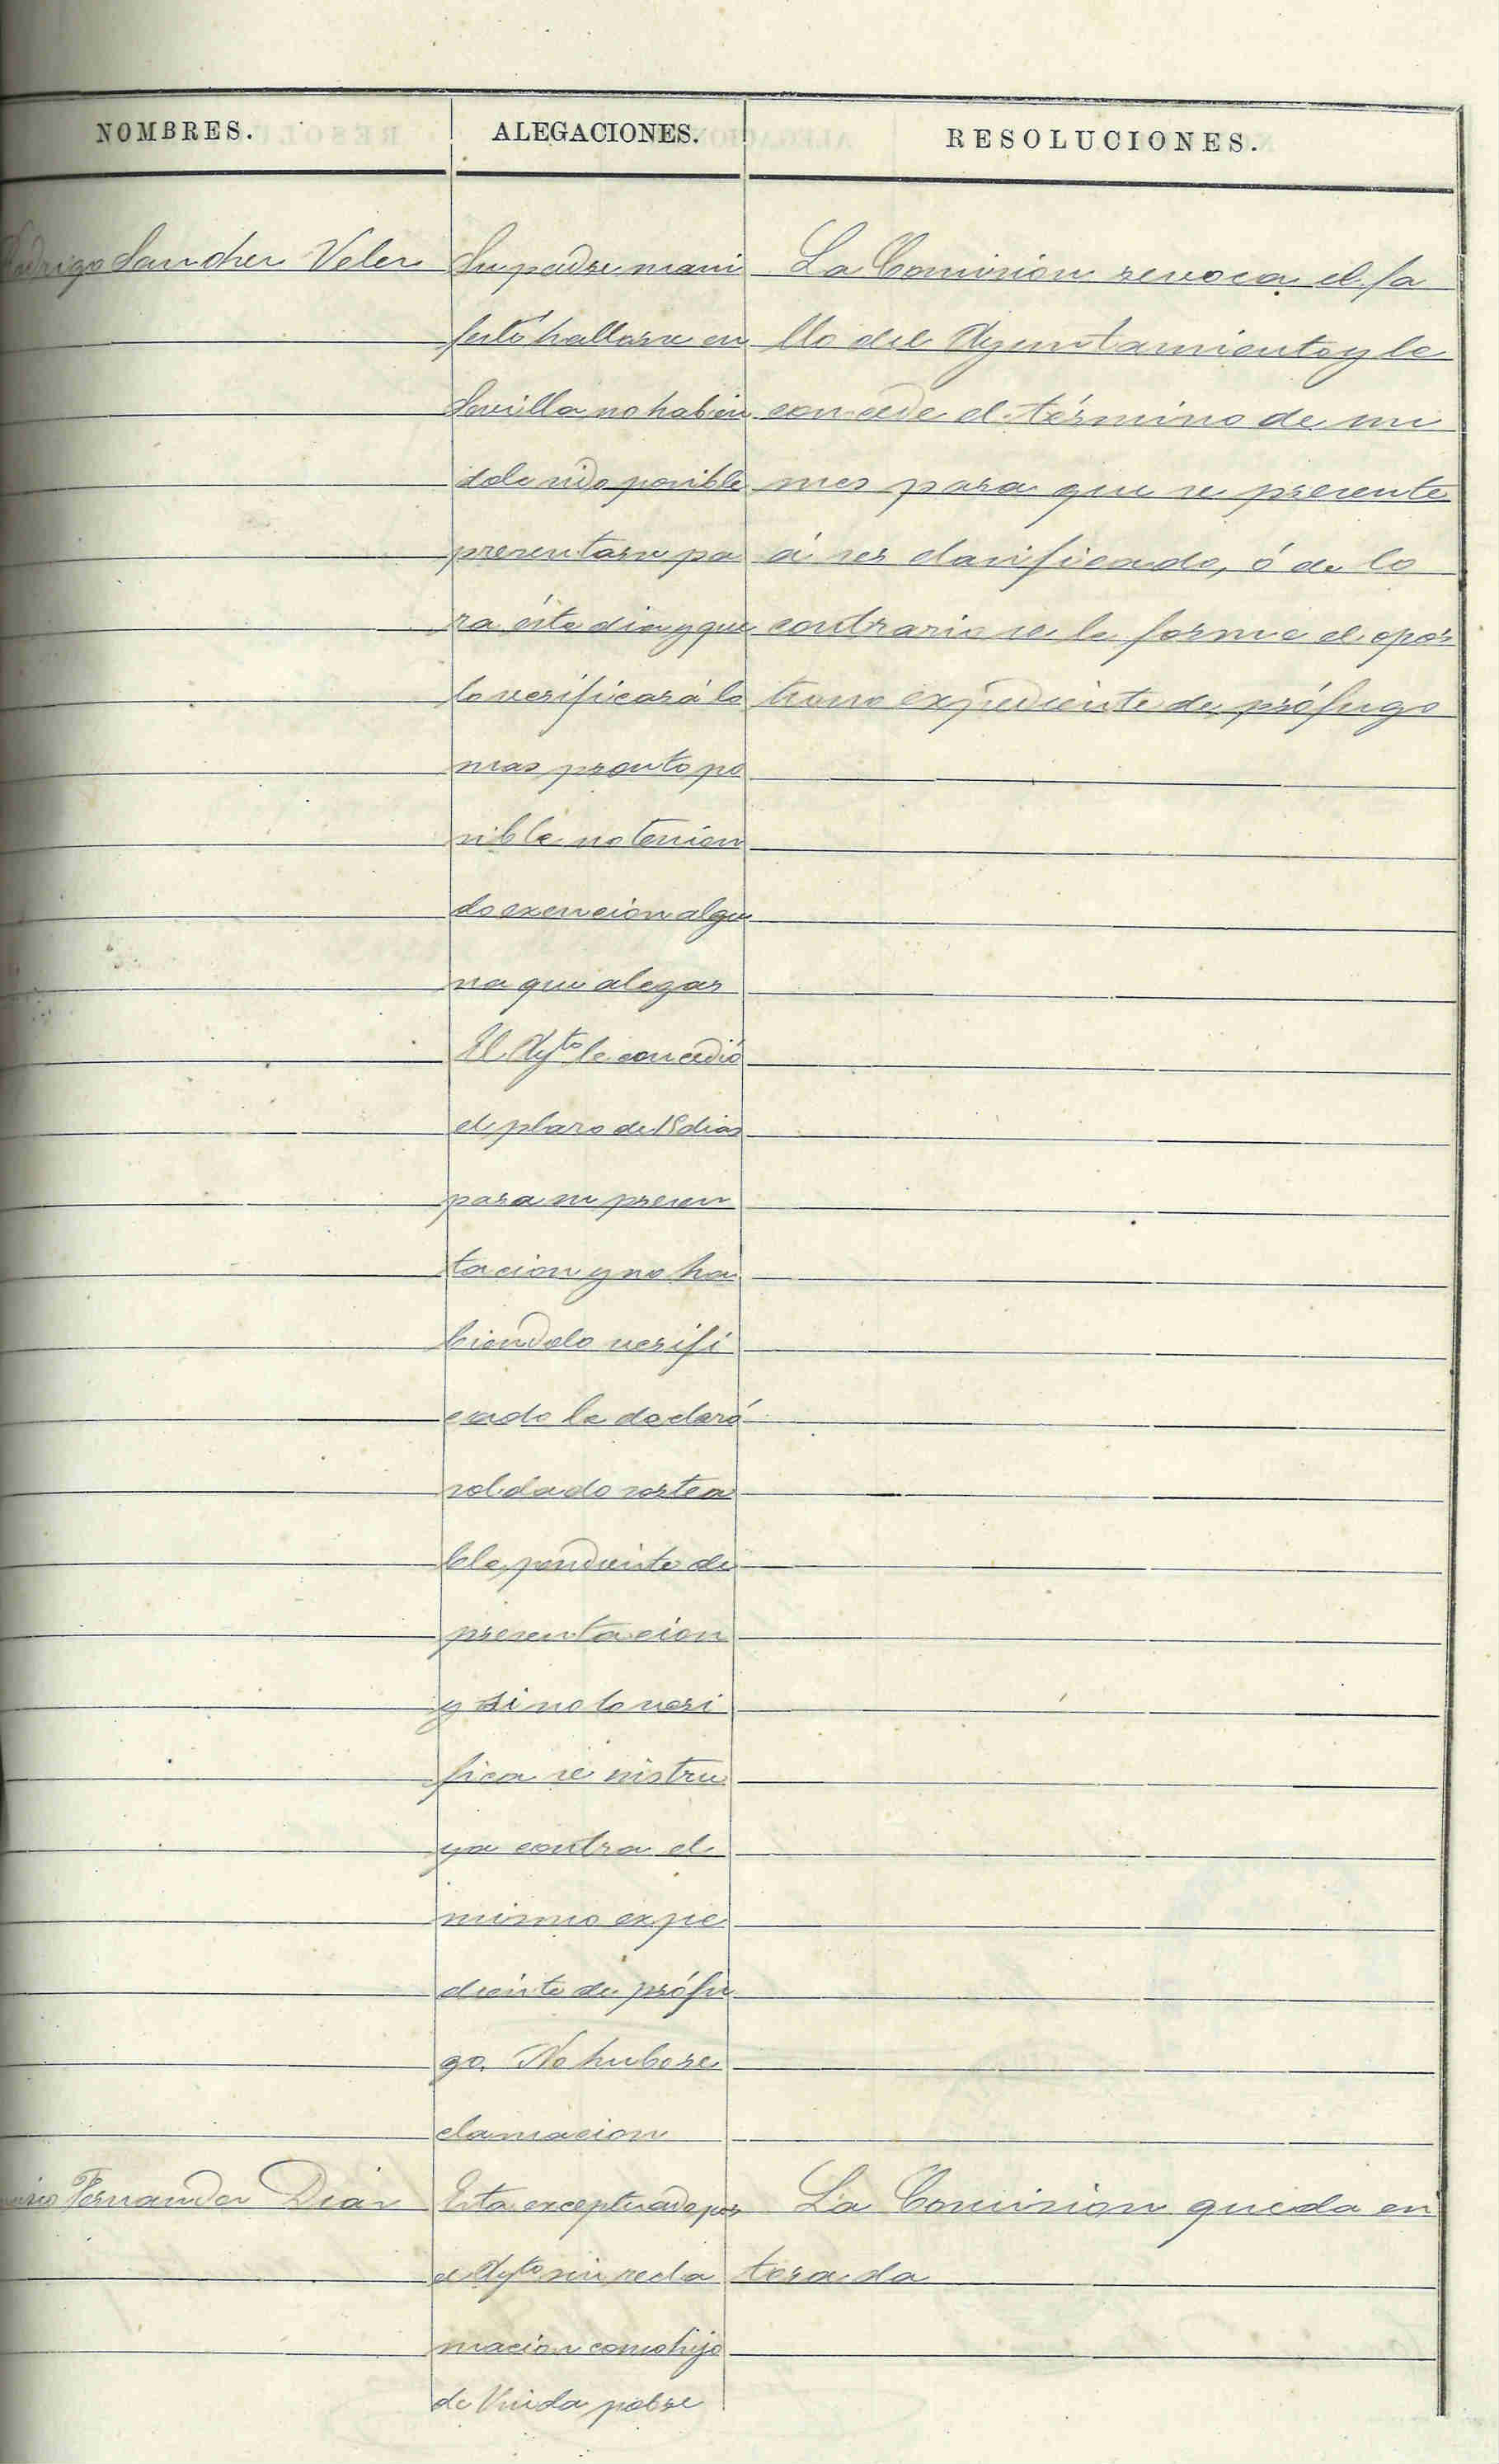 NOMBRES.
ALEGACIONES.
RESOLUCIONES.
Rodrigo Sanchez Velez
Su padre mani
festó hallarse en
Sevilla no habien
dole sido posible
presentarse pa
ra éste dia y que
lo verificará lo
mas pronto po
sible no tenien
do exencion algu
na que alegar
El Aytº le concedió
el plazo de 15 dias
para su presen
tacion y no ha
biendolo verifi
cado le declaró
soldado sortea
ble pendiente de
presentacion
y si no lo veri
fica se instru
ya contra el
mismo expe
diente de prófu
go. No hubo re
clamacion
La Comision revoca el fa
llo del Ayuntamiento y le
concede el término de un
mes para que se presente
á ser clasificado, ó de lo
contrario se le forme el opor
tuno expediente de prófugo
Fernandez Diaz
Esta exceptuado por
el Aytº sin recla
macion como hijo
de Viuda pobre
La Comision queda en
terada